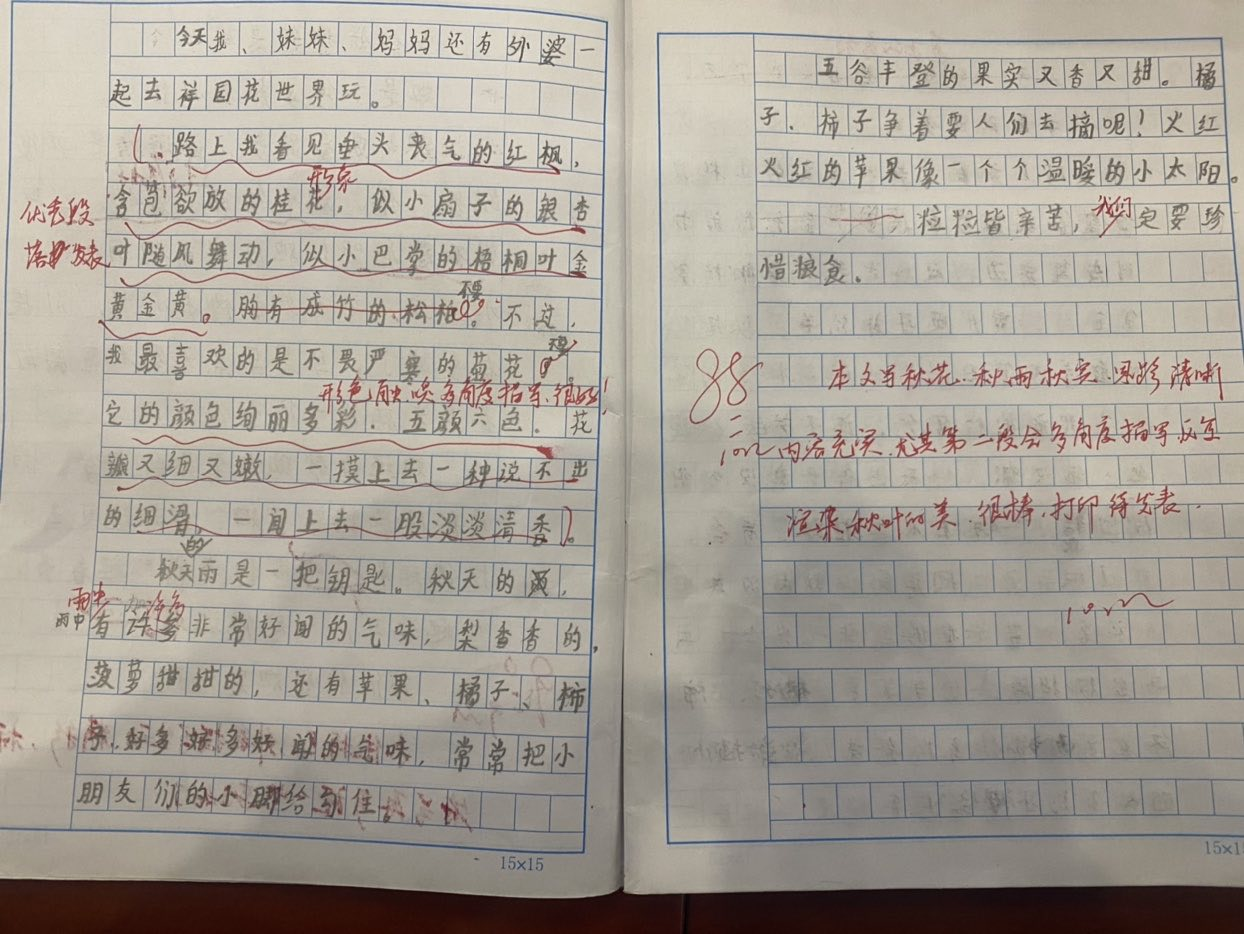 今天我、妹妹、妈妈还有外婆一
起去祥园花世界玩。
路上我看见垂头丧气的红枫，
形象
含苞欲放的桂花，似小扇子的银杏
优秀段
落扩发表
叶随风舞动，似小巴掌的梧桐叶金
黄金黄。胸有成竹的松柏。不过，
不要
我最喜欢的是不畏严寒的菊花。
形、色、触、嗅多角度描写，很好！
它的颜色绚丽多彩．五颜六色．花
瓣又细又嫩，一摸上去一种说不出
的细滑。一闻上去一股淡淡清香。
秋天的雨是一把钥匙。秋天的雨，
雨中
许多
雨中有许多非常好闻的气味，梨香香的，
菠萝甜甜的，还有苹果、橘子、柿
子，好多好多好闻的气味，常常把小
朋友们的小脚给勾住。
15×15
五谷丰登的果实又香又甜。橘
子、柿子争着要人们去摘呢！火红
火红的苹果像一个个温暖的小太阳。
一粒粒皆辛苦，我们一定要珍
惜粮食。
88
本文写秋花、秋雨、秋实，思路清晰
内容充实，尤其第二段会多角度描写
渲染秋叶的美，很棒，打印待发表．
15×15